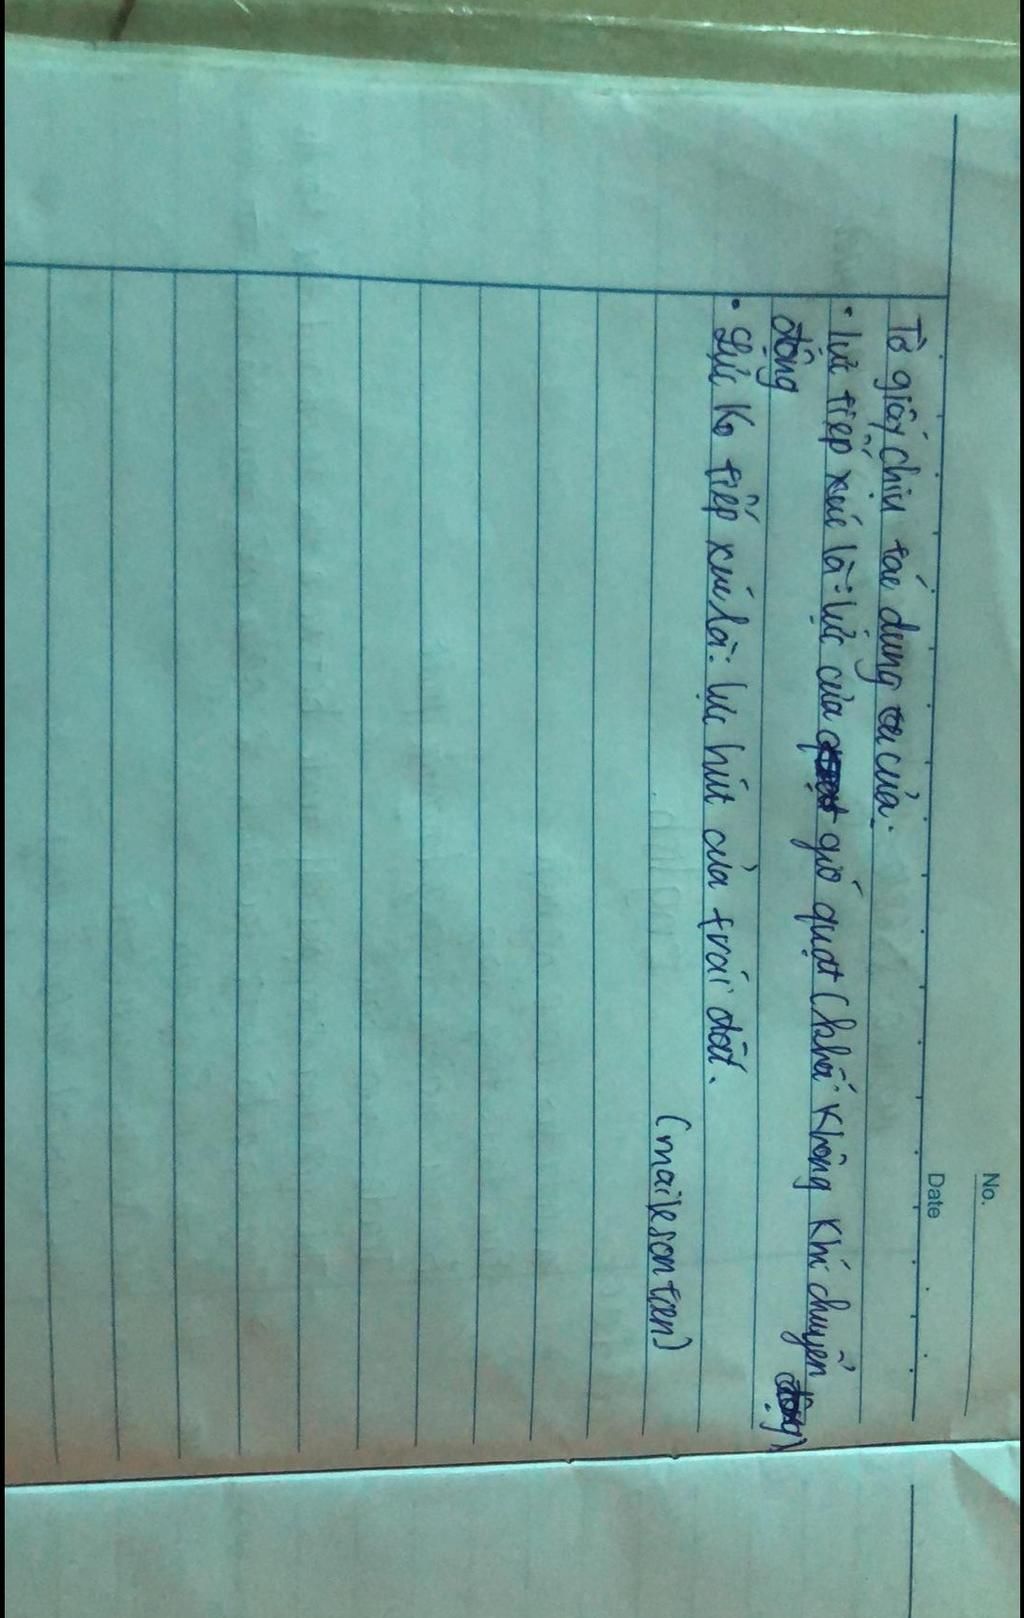 No.
Date
Tờ giấy chịu tác dụng của:
• lực tiếp xúc là: lực của gió quạt (khối không khí chuyển
động
• Lực ko tiếp xúc là: lực hút của trái đất.
(maiksontien)